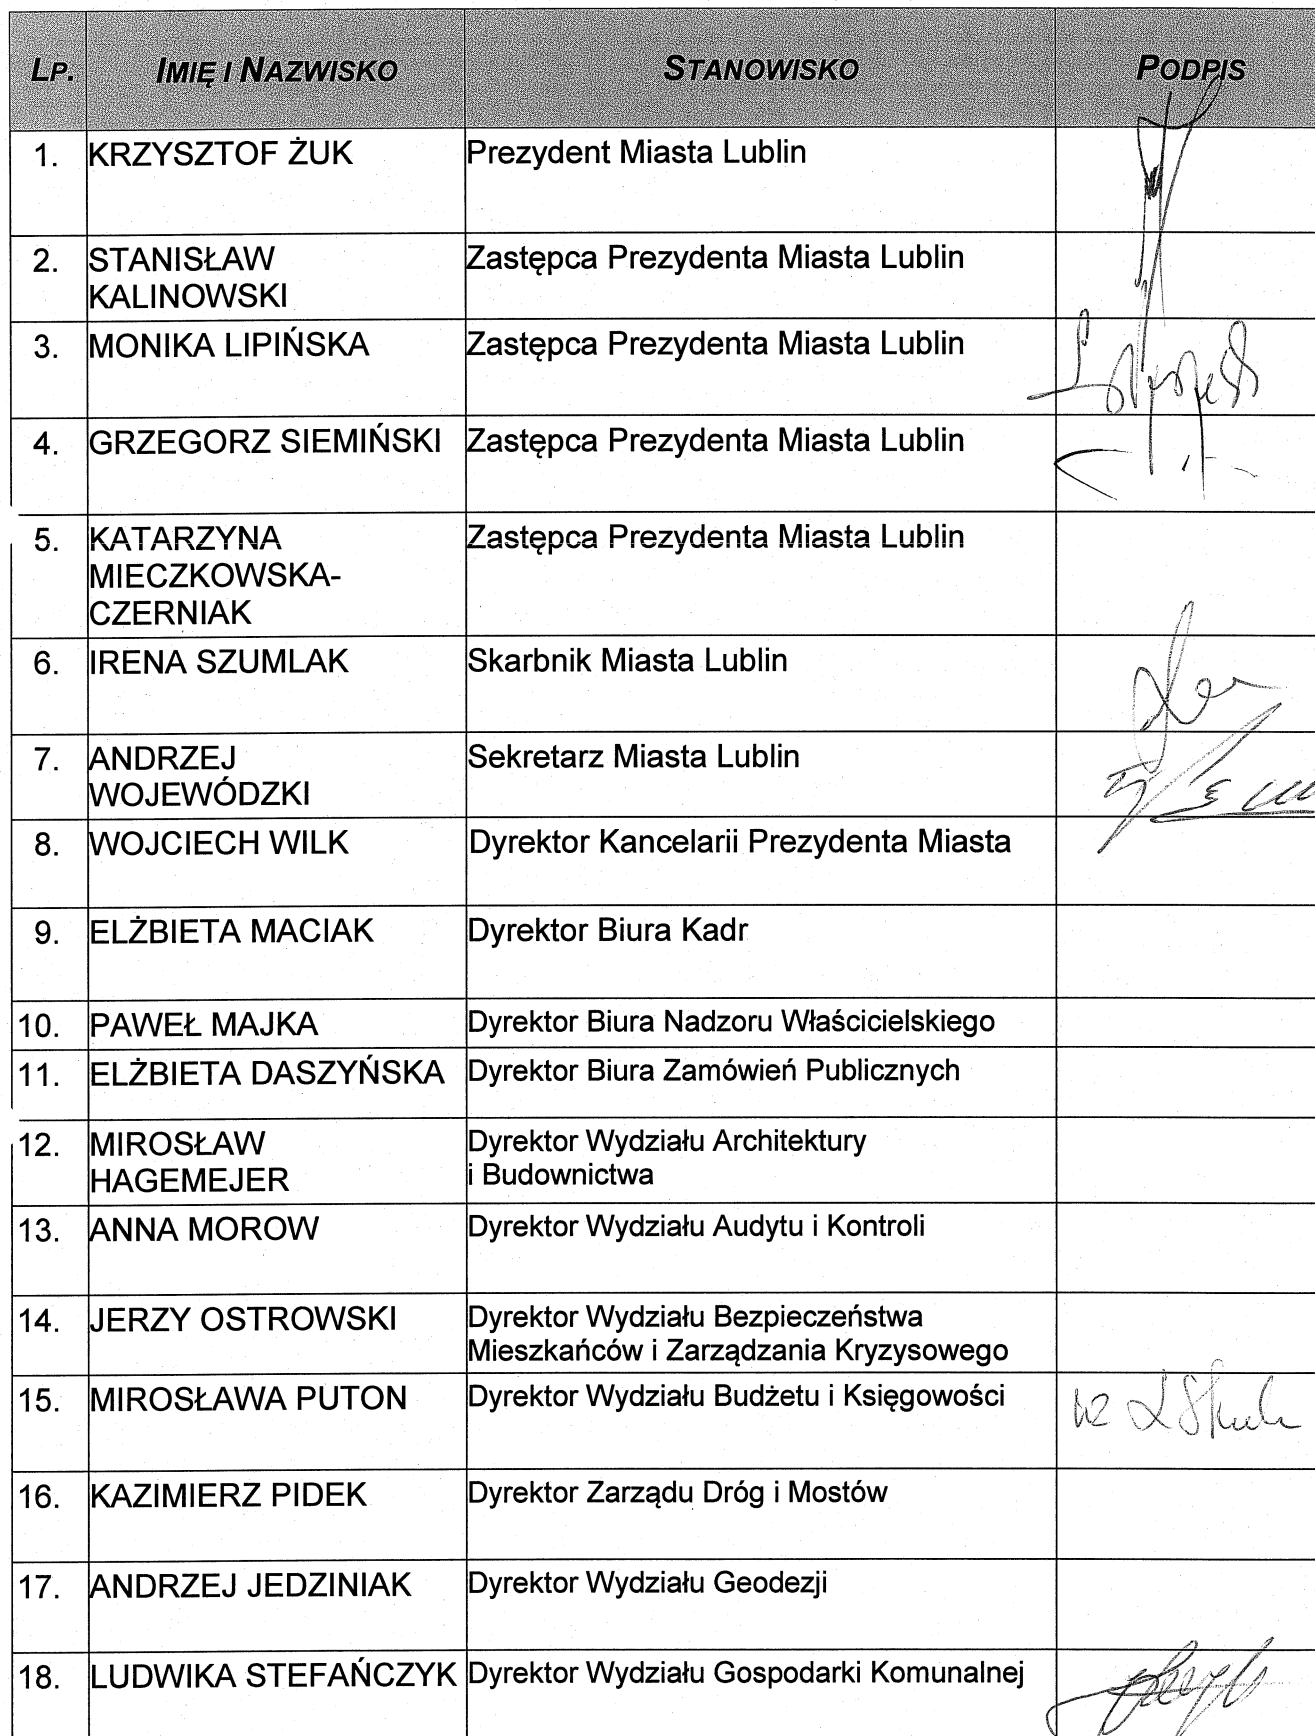 LP. IMIĘ I NAZWISKO STANOWISKO PODPIS
1. KRZYSZTOF ŻUK Prezydent Miasta Lublin
2. STANISŁAW Zastępca Prezydenta Miasta Lublin
KALINOWSKI
3. MONIKA LIPIŃSKA Zastępca Prezydenta Miasta Lublin
4. GRZEGORZ SIEMIŃSKI Zastępca Prezydenta Miasta Lublin
5. KATARZYNA Zastępca Prezydenta Miasta Lublin
MIECZKOWSKA-
CZERNIAK
6. IRENA SZUMLAK Skarbnik Miasta Lublin
7. ANDRZEJ Sekretarz Miasta Lublin
WOJEWÓDZKI
8. WOJCIECH WILK Dyrektor Kancelarii Prezydenta Miasta
9. ELŻBIETA MACIAK Dyrektor Biura Kadr
10. PAWEŁ MAJKA Dyrektor Biura Nadzoru Właścicielskiego
11. ELŻBIETA DASZYŃSKA Dyrektor Biura Zamówień Publicznych
12. MIROSŁAW Dyrektor Wydziału Architektury
HAGEMEJER i Budownictwa
13. ANNA MOROW Dyrektor Wydziału Audytu i Kontroli
14. JERZY OSTROWSKI Dyrektor Wydziału Bezpieczeństwa
Mieszkańców i Zarządzania Kryzysowego
15. MIROSŁAWA PUTON Dyrektor Wydziału Budżetu i Księgowości
16. KAZIMIERZ PIDEK Dyrektor Zarządu Dróg i Mostów
17. ANDRZEJ JEDZINIAK Dyrektor Wydziału Geodezji
18. LUDWIKA STEFAŃCZYK Dyrektor Wydziału Gospodarki Komunalnej